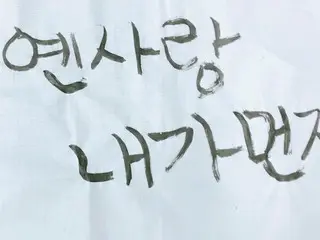 옌사랑
내가먼저